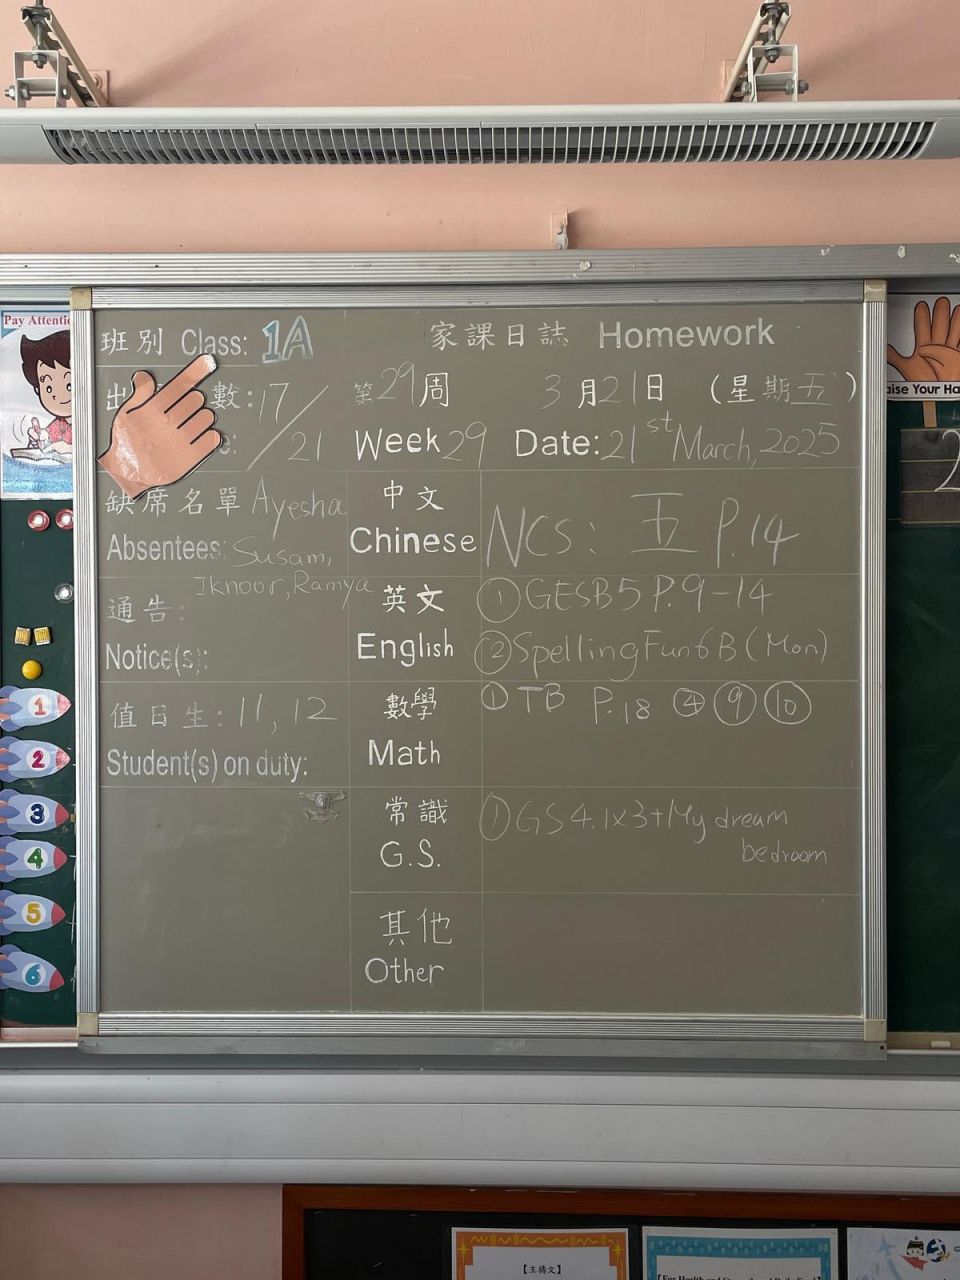 Pay Attenti
班別 Class: 1A
家課日誌 Homework
出 數: 17/
第29周
3月21日 (星期五)
: /21
Week 29
Date: 21st March, 2025
缺席名單 Ayesha
Absentees: Susam,
Iknoor, Ramya
中文
Chinese
NCS: 五 P.14
通告:
Notice(s):
英文
English
① GESB5 P.9-14
② Spelling Fun 6B (Mon)
值日生: 11, 12
Student(s) on duty:
數學
Math
① TB P.18 ④ ⑨ ⑩
常識
G.S.
① GS 4.1x3+My dream
bedroom
其他
Other
aise Your Ha
2
1
2
3
4
5
6
【主禱文】